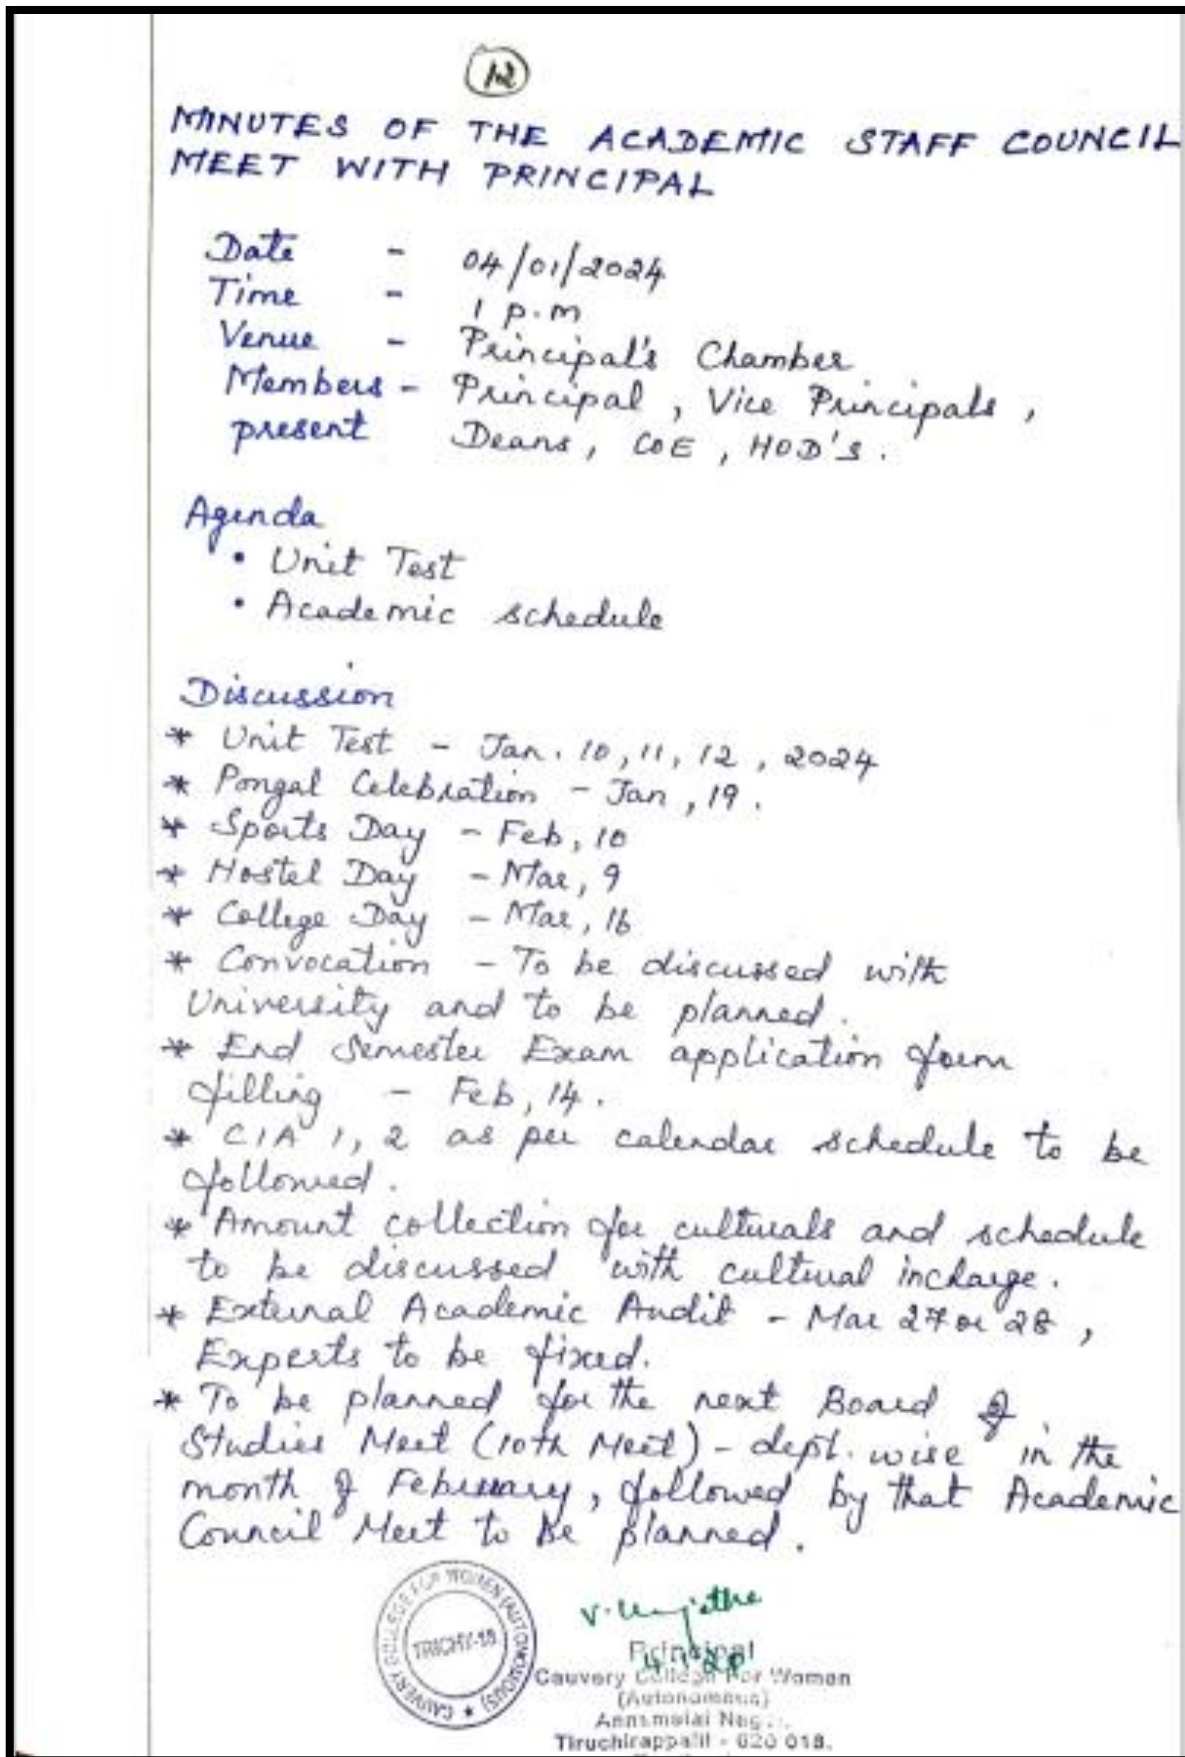 12
MINUTES OF THE ACADEMIC STAFF COUNCIL
MEET WITH PRINCIPAL
Date - 04/01/2024
Time - 1 p.m
Venue - Principal's Chamber
Members - Principal, Vice Principals,
present Deans, COE, HOD's.
Agenda
• Unit Test
• Academic schedule
Discussion
* Unit Test - Jan. 10, 11, 12, 2024
* Pongal Celebration - Jan, 19.
* Sports Day - Feb, 10
* Hostel Day - Mar, 9
* College Day - Mar, 16
* Convocation - To be discussed with
University and to be planned.
* End Semester Exam application form
filling - Feb, 14.
* CIA 1, 2 as per calendar schedule to be
followed.
* Amount collection for culturals and schedule
to be discussed with cultural incharge.
* External Academic Audit - Mar 27 or 28,
Experts to be fixed.
* To be planned for the next Board of
Studies Meet (10th Meet) - dept. wise in the
month of February, followed by that Academic
Council Meet to be planned.
CAUVERY COLLEGE FOR WOMEN (AUTONOMOUS) ★
TRICHY-18
Principal
Cauvery College For Women
(Autonomous)
Annamalai
Tiruchirappalli - 620 018.